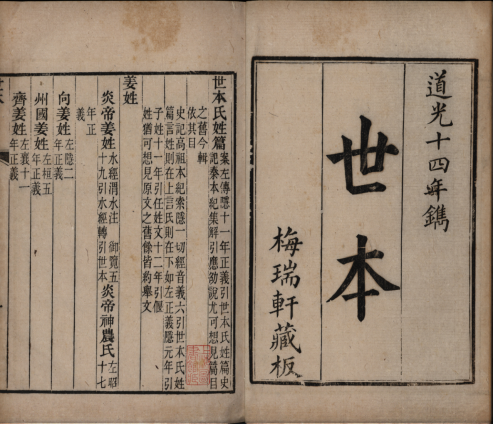 道光十四年鐫
世本
梅瑞軒藏板
世本氏姓篇 案左傳隱十一年正義引世本氏姓篇史
記秦本紀集解引應劭說尤可想見篇目
之舊今輯
依其目
史記高祖本紀索隱一切經音義六引世本氏姓
篇言姓則在上言氏則在下如左正義隱元年引
子姓十一年引任姓文十二年引偃
姓猶可想見原文之舊餘皆約舉文
姜姓
炎帝姜姓 水經渭水注 御覽五
十九引水經轉引世本 炎帝神農氏 左昭十七
年正
向姜姓 左隱二
年正義
州國姜姓 左桓五
年正義
齊姜姓 左襄十一
年正義